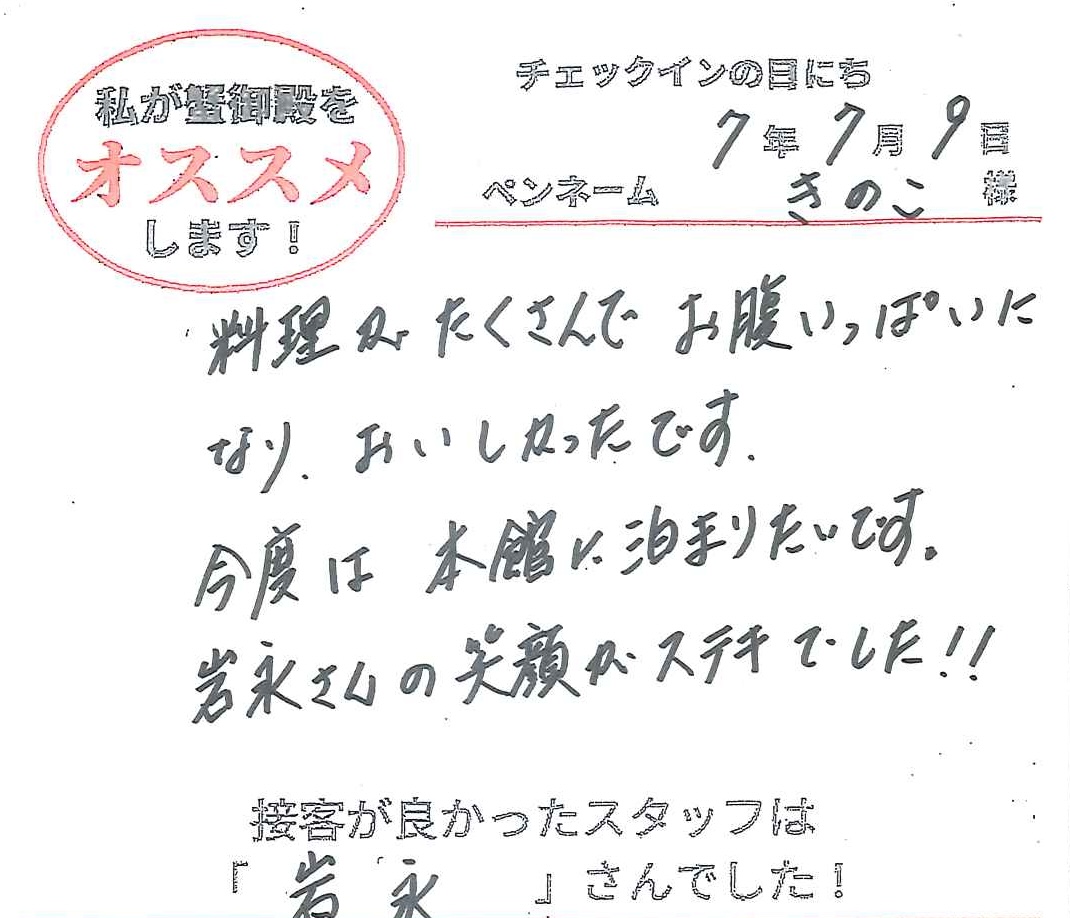 私が蟹御殿を
オススメ
します！
チェックインの日にち
7年7月9日
ペンネーム きのこ 様
料理がたくさんで お腹いっぱいに
なり、おいしかったです。
今度は 本館に泊まりたいです。
岩永さんの笑顔がステキでした!!
接客が良かったスタッフは
「岩永」さんでした！